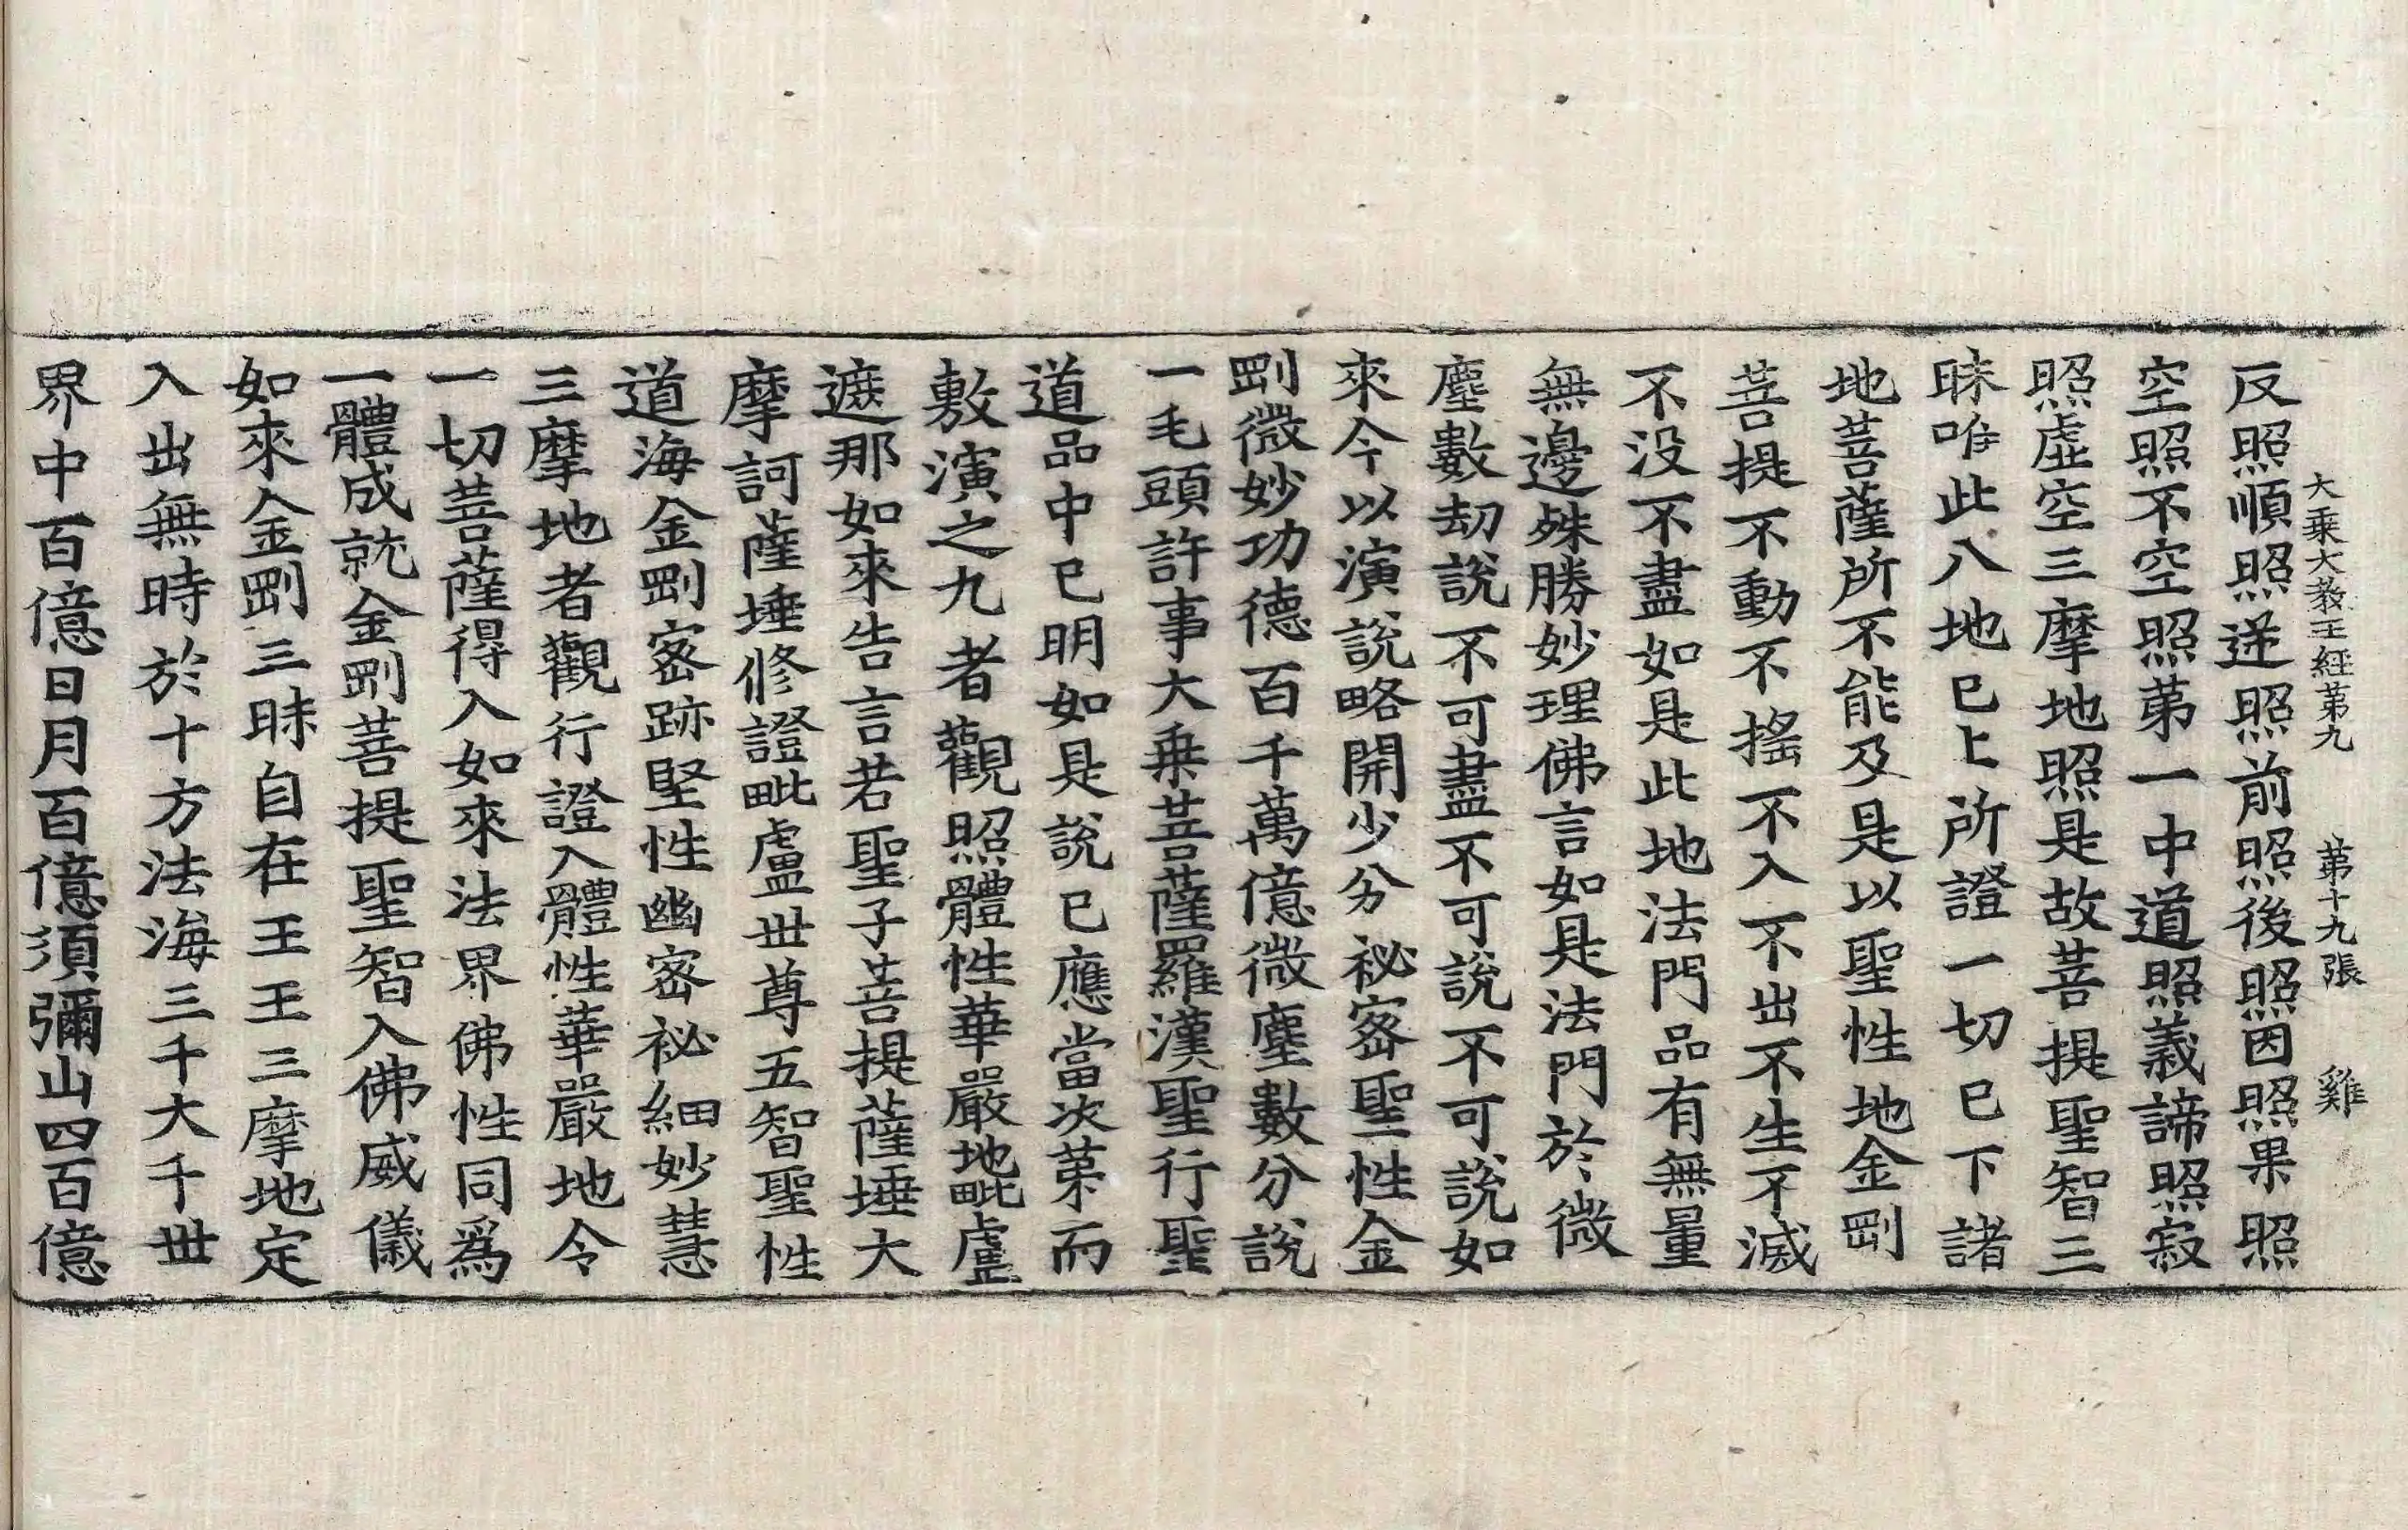 大乗大教王經苐九　苐十九張　雞
反照順照逆照前照後照因照果照
空照不空空照苐一中道照義諦照寂
照虛空三摩地照是故菩提聖智三
昧唯此八地已上所證一切已下諸
地菩薩所不能及是以聖性地金剛
菩提不動不搖不入不出不生不滅
不没不盡如是此地法門品有無量
無邊殊勝妙理佛言如是法門於微
塵數劫說不可盡不可說不可說如
來今以演說略開少分祕密聖性金
剛微妙功德百千萬億微塵數分說
一毛頭許事大乗菩薩羅漢聖行聖
道品中已明如是說已應當次苐而
敷演之九者觀照體性華嚴地毗盧
遮那如來告言若聖子菩提薩埵大
摩訶薩埵修證毗盧世尊五智聖性
道海金剛密跡堅性幽密祕細妙慧
三摩地者觀行證入體性華嚴地令
一切菩薩得入如來法界佛性同爲
一體成就金剛菩提聖智入佛威儀
如來金剛三昧自在王王三摩地定
入出無時於十方法海三千大千世
界中百億日月百億須彌山四百億